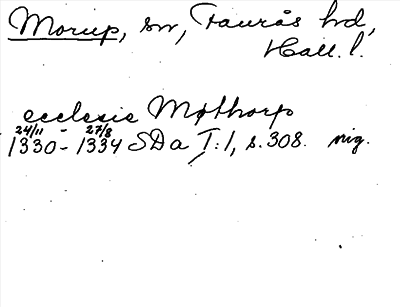 Morup, sn, Faurås hd,
Hall. l.
ecclesie Møthorp
24/11 - 27/8
1330 - 1334 SDa I:1, s. 308. mig.